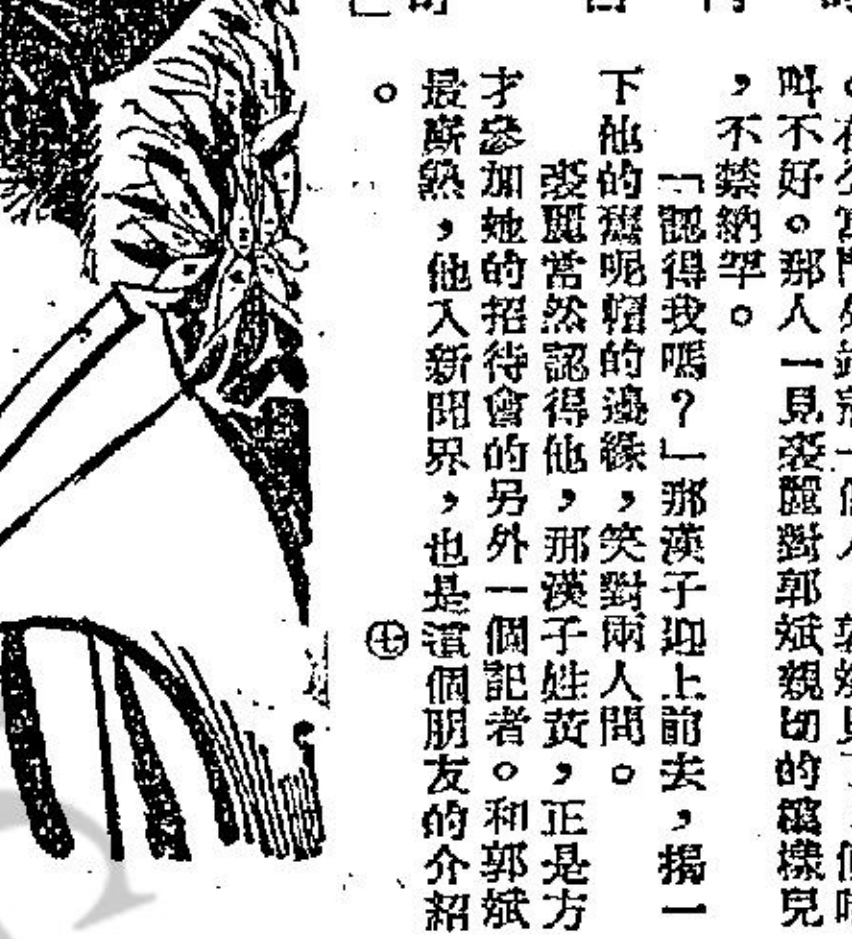 叫不好。那人一見裘麗對郭斌親切的這樣兒
，不禁納罕。
「認得我嗎？」那漢子迎上前去，揚一
下他的舊呢帽的邊緣，笑對兩人問。
裘麗當然認得他，那漢子姓黃，正是方
才參加她的招待會的另外一個記者。和郭斌
最廝熟，他入新聞界，也是這個朋友的介紹
。 ㊆